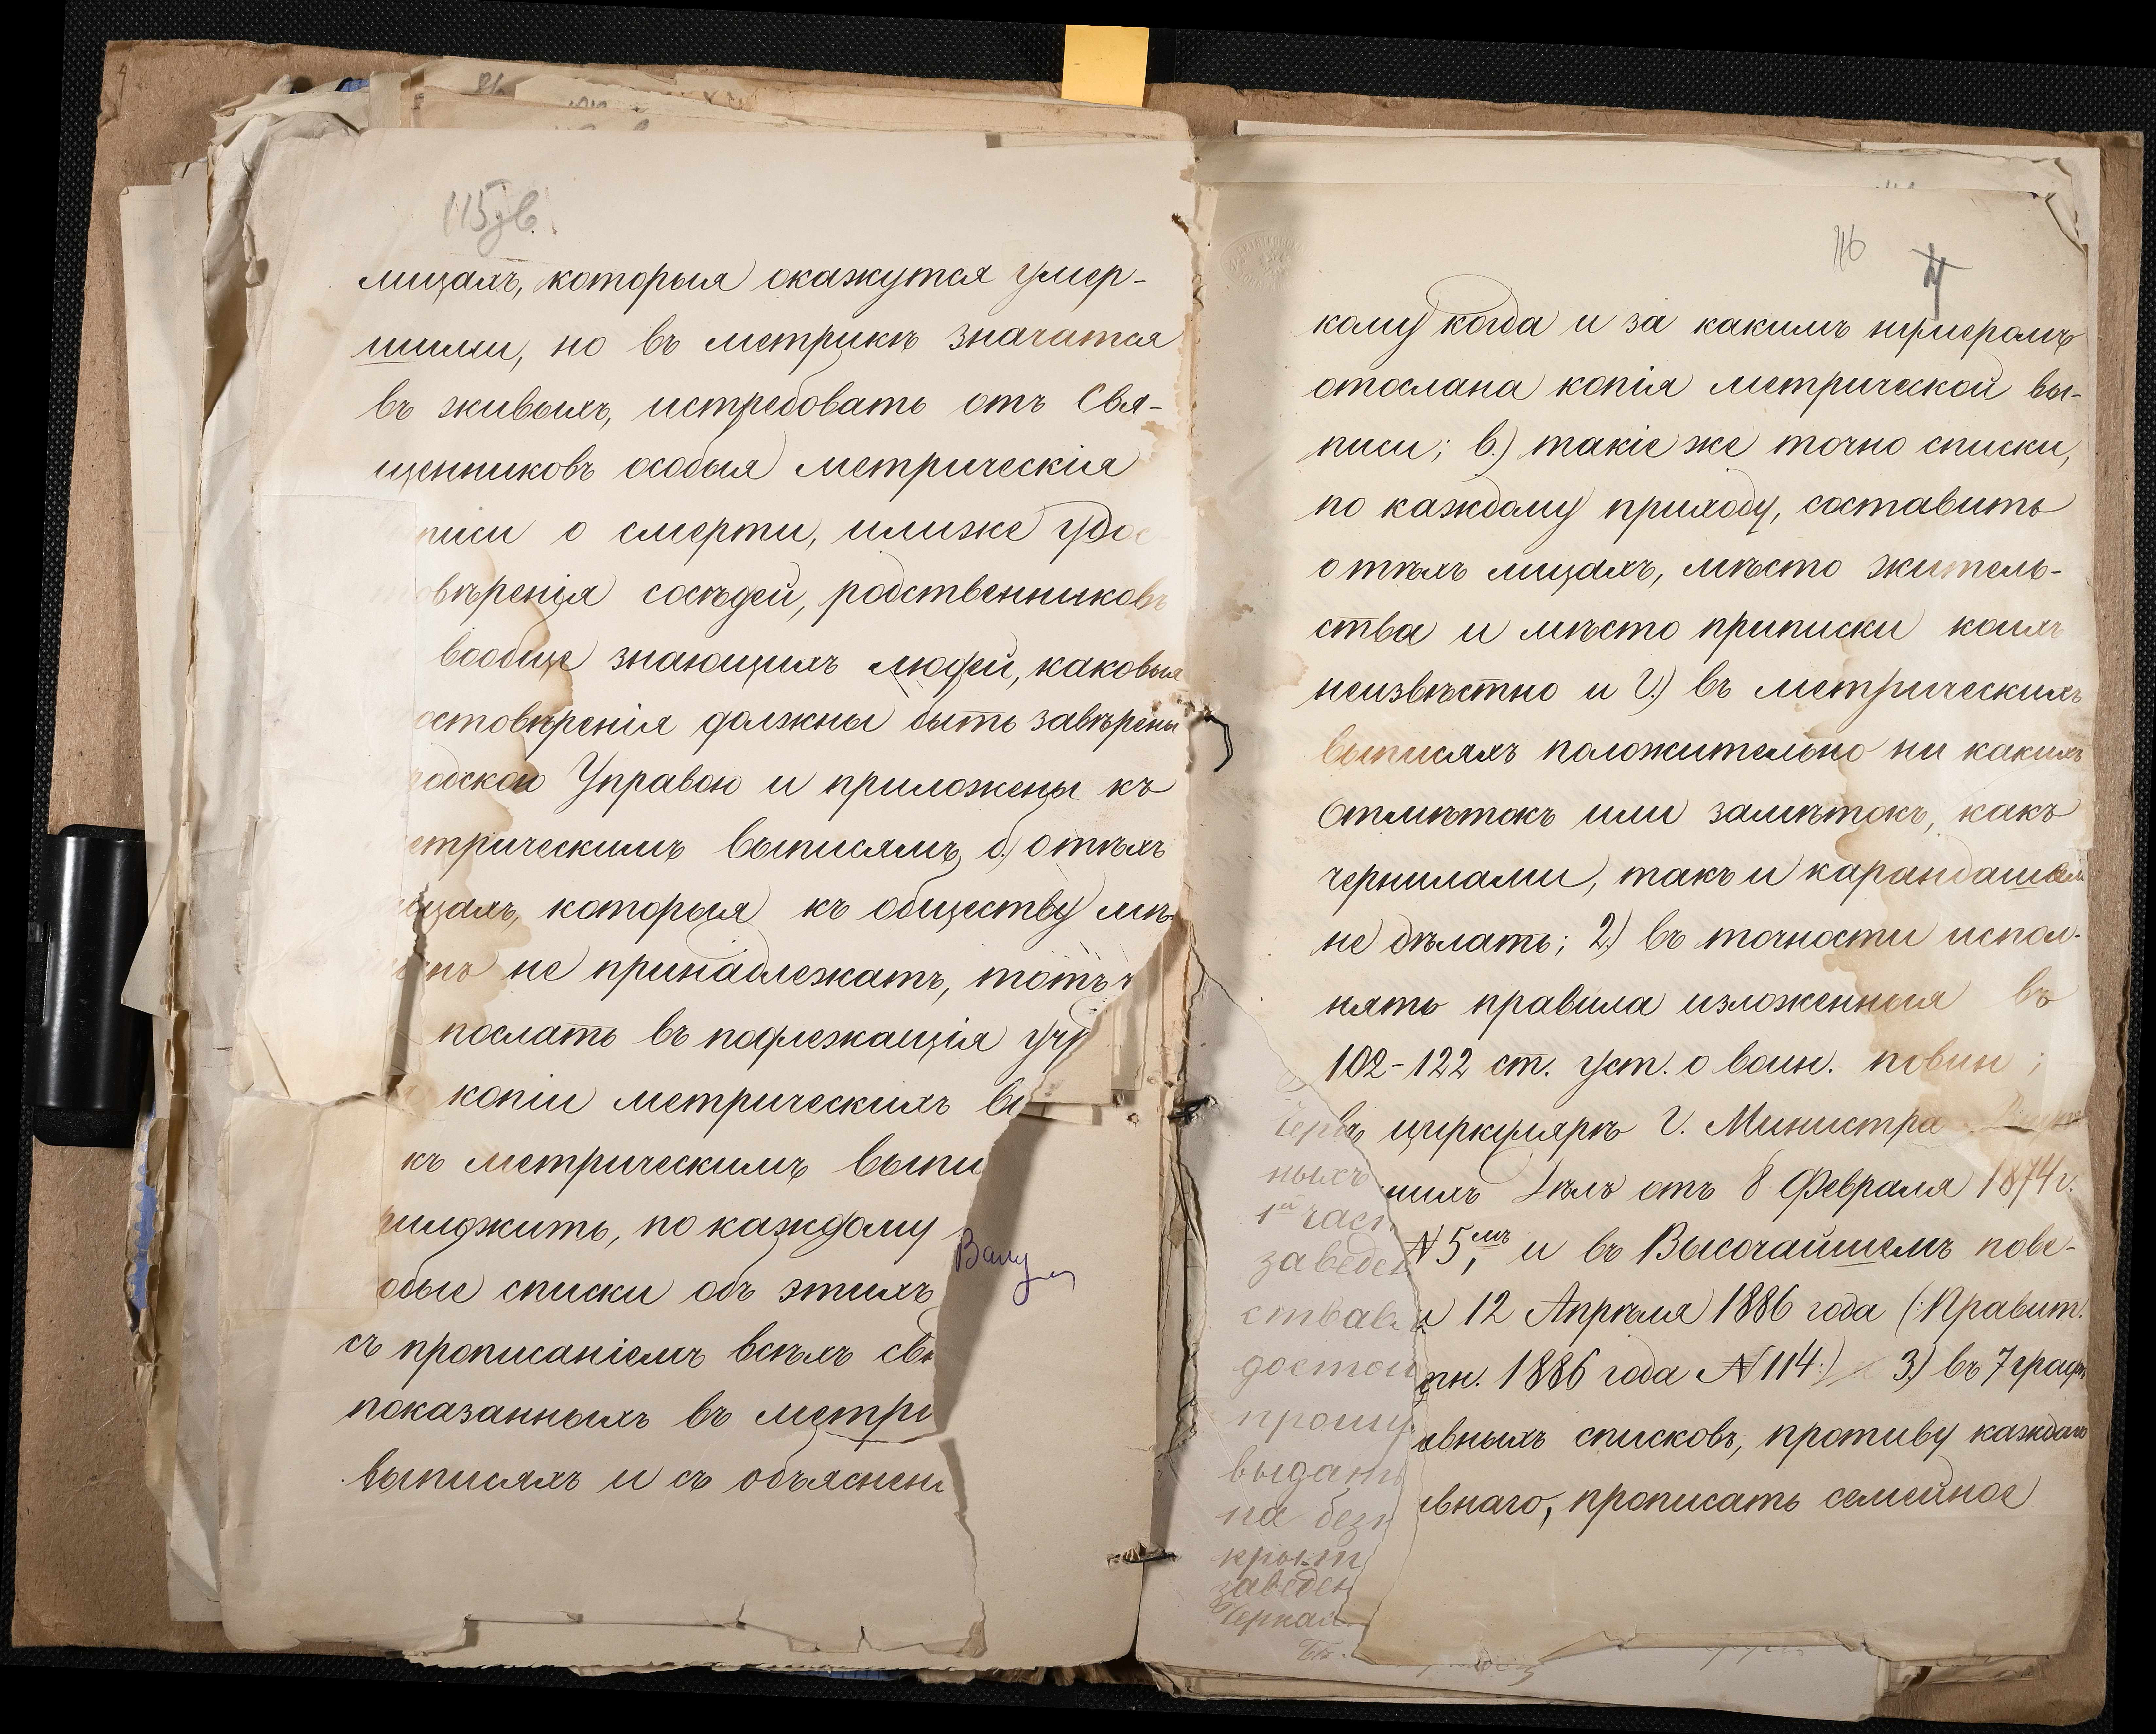 115 зв.
лицахъ, которыя окажутся умер-
шими, но въ метрикѣ значатся
въ живыхъ, истребовать отъ Свя-
щенниковъ особыя метрическія
писи о смерти, илиже удос
овѣренія сосѣдей, родственниковъ
вообще знающихъ людей, каковыя
остовѣренія должны быть завѣрены
родскою Управою и приложены къ
етрическимъ выписямъ, б.) о тѣхъ
ицахъ, которыя къ обществу мѣ
не принадлежатъ, тотъ ч
послать въ подлежащія учр
копіи метрическихъ вы
къ метрическимъ выпи
риложить, по каждому
обые списки объ этихъ
съ прописаніемъ всѣхъ свѣ
показанныхъ въ метри
выписяхъ и съ объяснені
116
кому когда и за какимъ нумеромъ
отослана копія метрической вы-
писи; в.) такіе же точно списки,
по каждому приходу, составить
о тѣхъ лицахъ, мѣсто житель-
ства и мѣсто приписки коихъ
неизвѣстно и г.) въ метрическихъ
выписяхъ положительно ни какихъ
отмѣтокъ или замѣтокъ, какъ
чернилами, такъ и карандашемъ
не дѣлать; 2.) въ точности испол-
нять правила изложенныя въ
102-122 ст. уст. о воин. повин;
въ циркулярѣ Г. Министра
нихъ Дѣлъ отъ 8 Февраля 1874 г.
№ 5, мъ и въ Высочайшемъ пове-
и 12 Апрѣля 1886 года (:Правит.
тн. 1886 года № 114:) 3.) въ 7 граф
ывныхъ списковъ, противу каждаго
ывнаго, прописать семейное
ныхъ
1й част
заведен
ствавъ
достои
прошу
выдать
на без
крыт
заведен